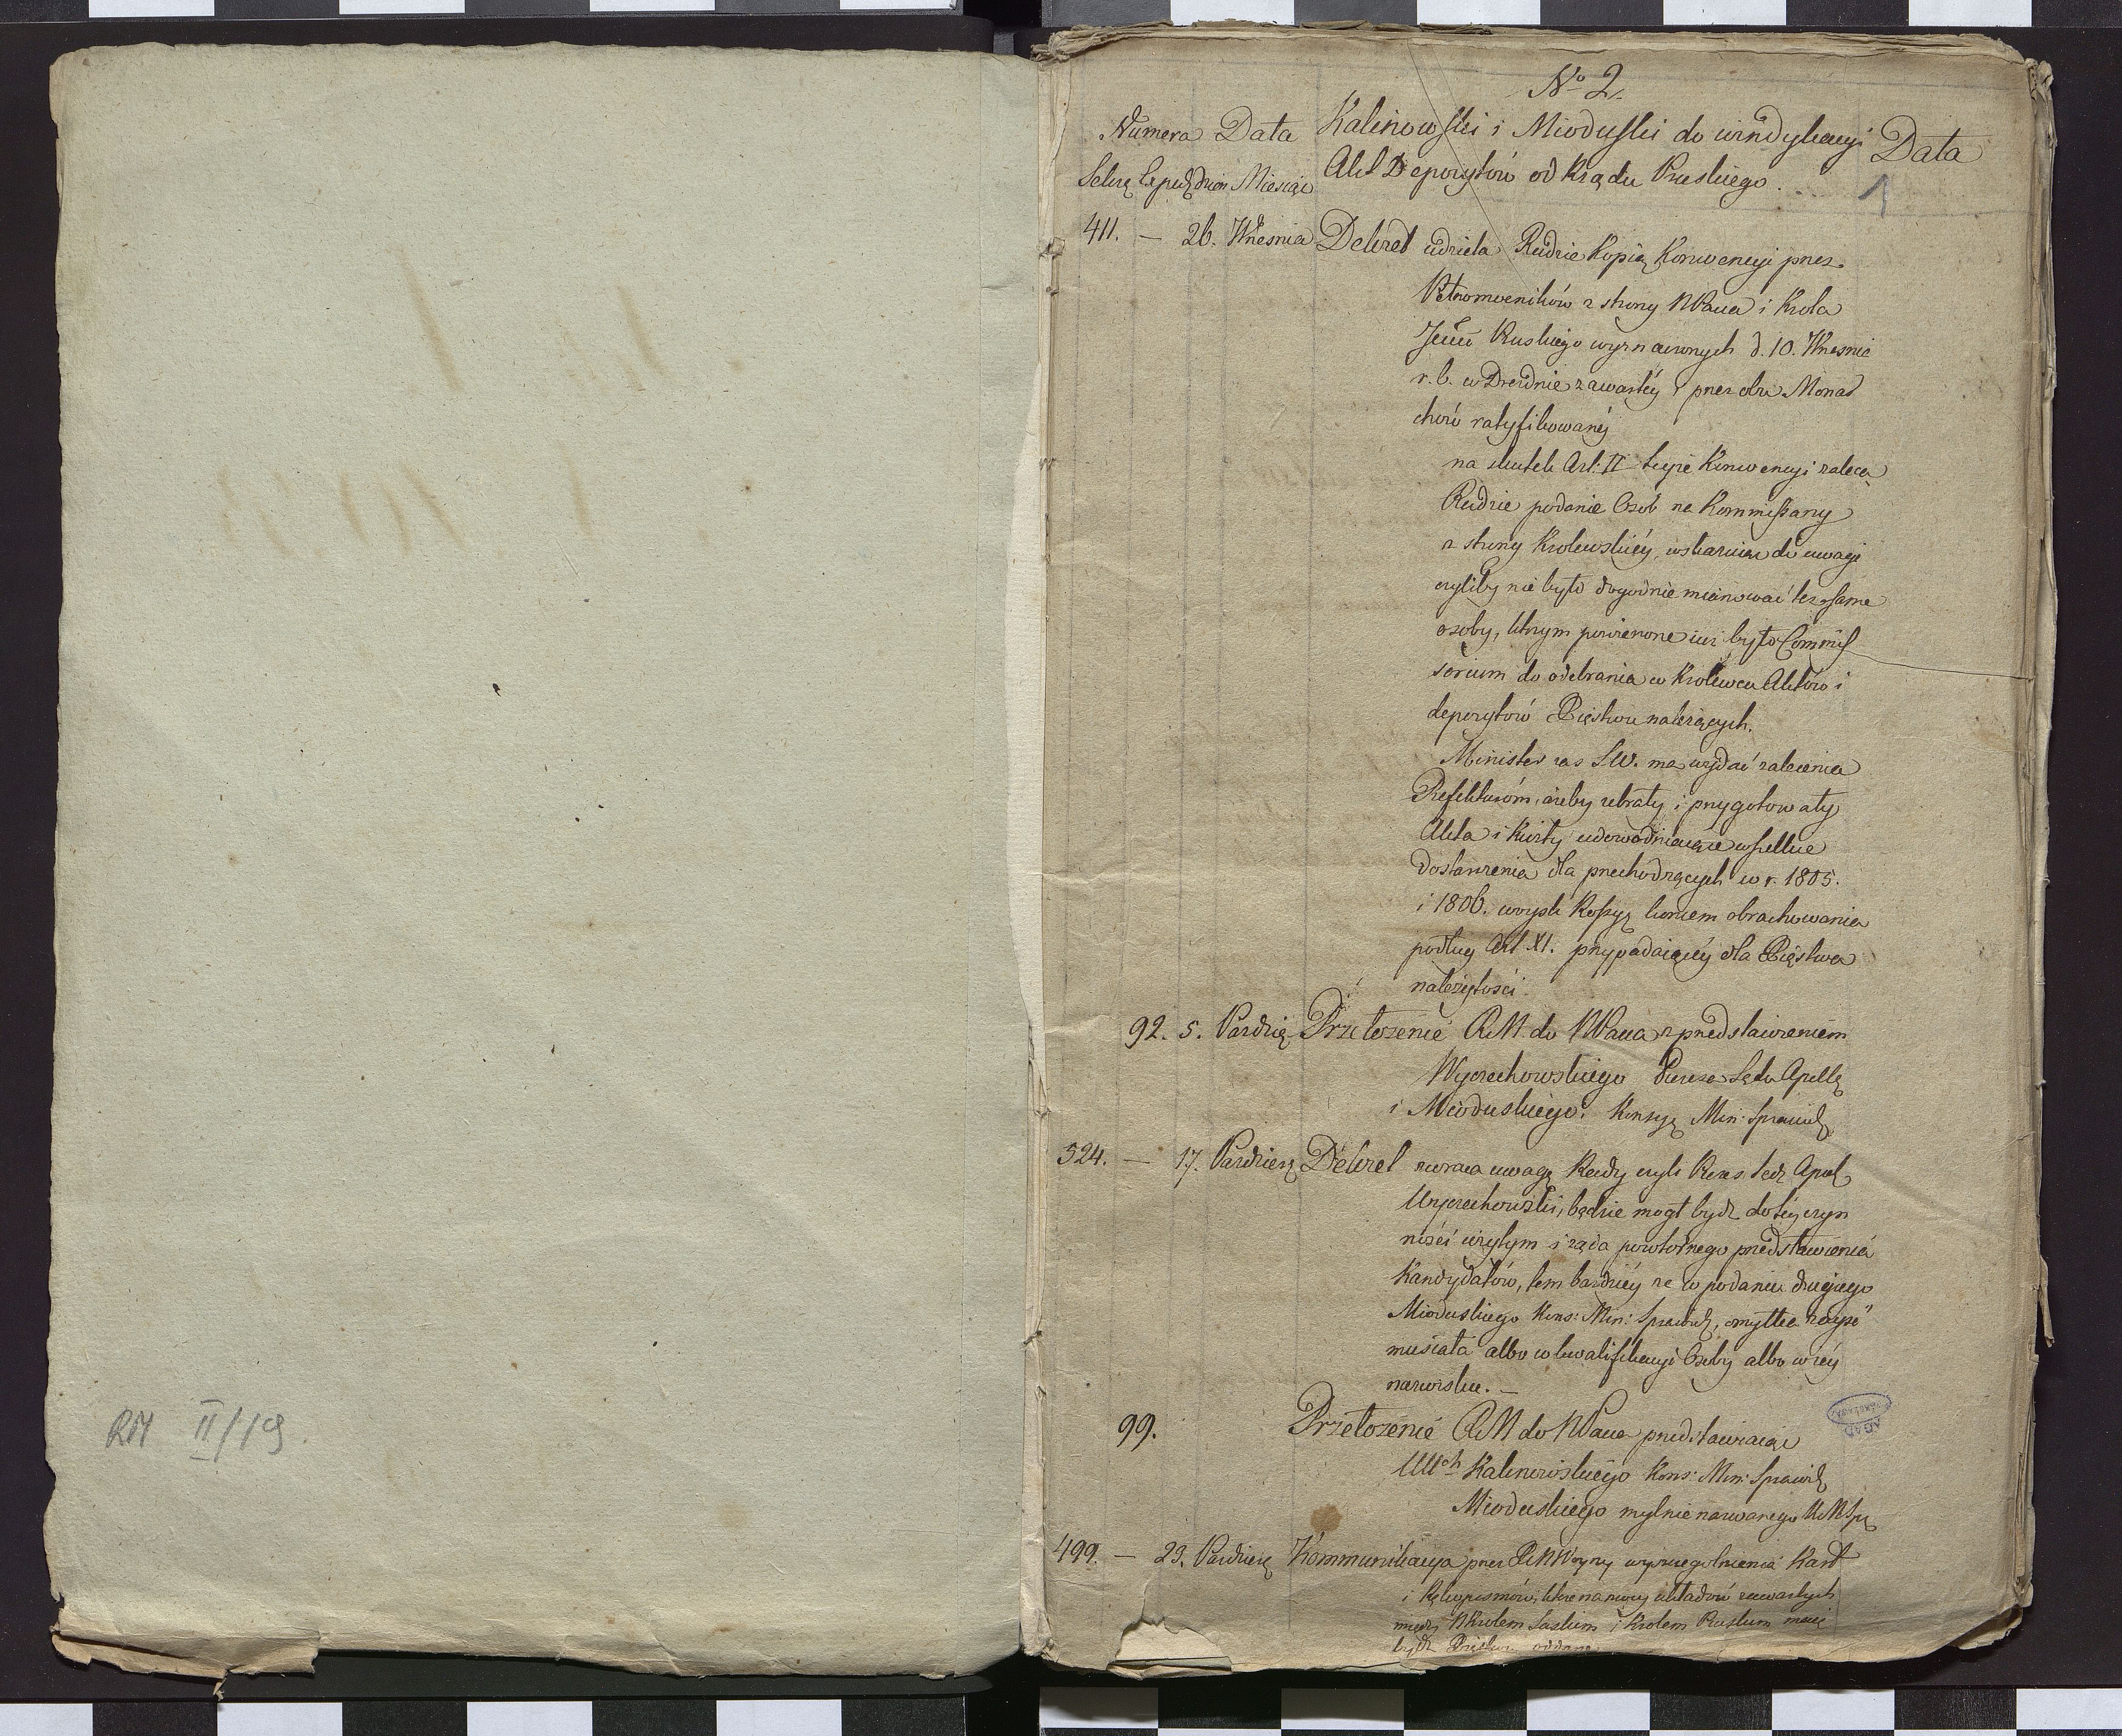 RM II/19.
No 2.
Numera Data Kalinowski i Mioduski do windykacyi Data
Sekre Expedy Dzien Miesiąc Akt Depozytów od Rządu Pruskiego.
1
411. — 26. Wrzesnia Dekret udziela Radzie Kopią Konwencyi przez
Pełnomocników z strony NPana i Krola
Jmci Pruskiego wyznaczonych d. 10. Wrzesnia
r. b. w Dreznie zawartéy i przez obu Monar
chów ratyfikowanéy
na skutek Art: II teyże Konwencyi zaleca
Radzie podanie Osob na Kommissarzy
z strony Krolewskiéy, wskazuiąc do uwagi
czyliby nie było dogodnie mianować też same
osoby, którym powierzone iuż było Commis
sorium do odebrania w Krolewcu Aktów i
depozytów Xięstwu należących.
Minister zas SW. ma wydać zalecenia
Prefektóm, ażeby zebrały i przygotowały
Akta i Kwity udowadniaiące wszelkie
dostawienia dla przechodzących w r. 1805.
i 1806. woysk Rossyi: końcem obrachowania
podług Art XI. przypadaiącéy dla Xięstwa
należytości.
92. 5. Pazdzie Przełożenie RM. do NPana z przedstawieniem
Wyczechowskiego Prezesa Sądu Apella
i Mioduskiego. Konsy Min: Sprawied
524. — 17. Pazdzier Dekret zwraca uwagę Rady czyli Prezes Sądu Apel
Wyczechowski, będzie mogł bydź do téy czyn
ności użytym i żąda powtórnego przedstawienia
Kandydatów, tem bardziéy że w podaniu drugiego
Mioduskiego Kons: Min: Sprawied, omyłka zayść
musiała albo w kwalifikacyi Osoby albo w iéy
nazwisku. —
99. Przełożenie RM do NPana przedstawiaiące
UUch Kalinowskiego Kons: Min: Sprawied
Mioduskiego mylnie nazwanego KMSpr
AGAD
499. — 29. Pazdzier Kommunikacya przez MWoyny wyszczegolnienia Kart
i Rękopismów, które na mocy układów zawartych
między NKrolem Saskim i Krolem Pruskim maią
bydź Xięstwu oddane